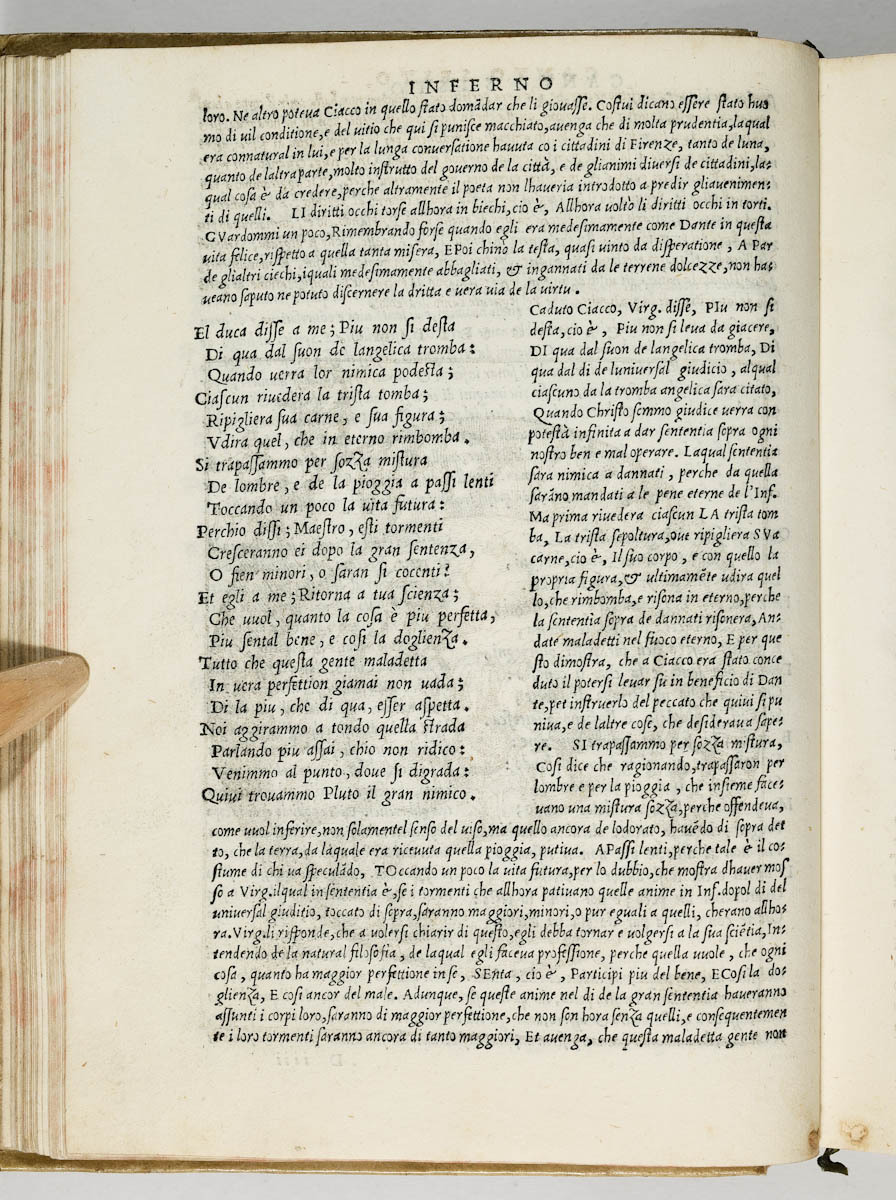 INFERNO
loro. Ne altro poteva Ciacco in quello stato domãdar che li giovasse. Costui dicano essere stato huo
mo di vil conditione, e del vitio che qui si punisce macchiato, avenga che di molta prudentia, la qual
era connatural in lui, e per la lunga conversatione havuta co i cittadini di Firenze, tanto de luna,
quanto de laltra parte, molto instrutto del governo de la città, e de glianimi diversi de cittadini, la-
qual cosa è da credere, perche altramente il poeta non lhaveria introdotto a predir gliavenimen-
ti di quelli. LI diritti occhi torse allhora in biechi, cio è, Allhora voltò li diritti occhi in torti.
GVardommi un poco, Rimembrando forse quando egli era medesimamente come Dante in questa
vita felice, rispetto a quella tanta misera, EPoi chinò la testa, quasi vinto da disperatione, A Par
de glialtri ciechi, iquali medesimamente abbagliati, & ingannati da le terrene dolcezze, non ha-
veano saputo ne potuto discernere la dritta e vera via de la virtu.
El duca disse a me; Piu non si desta
Di qua dal suon de langelica tromba:
Quando uerra lor nimica podesta;
Ciascun riuedera la trista tomba;
Ripigliera sua carne, e sua figura;
Vdira quel, che in eterno rimbomba.
Si trapassammo per sozza mistura
De lombre, e de la pioggia a passi lenti
Toccando un poco la uita futura:
Perchio dissi; Maestro, esti tormenti
Cresceranno ei dopo la gran sentenza,
O fien minori, o saran si cocenti?
Et egli a me; Ritorna a tua scienza;
Che uuol, quanto la cosa è piu perfetta,
Piu sental bene, e cosi la doglienza.
Tutto che questa gente maladetta
In uera perfettion giamai non uada;
Di la piu, che di qua, esser aspetta.
Noi aggirammo a tondo quella strada
Parlando piu assai, chio non ridico:
Venimmo al punto, doue si digrada:
Quiui trouammo Pluto il gran nimico.
Caduto Ciacco, Virg. disse, PIu non si
desta, cio è, Piu non si leva da giacere,
DI qua dal suon de langelica tromba, Di
qua dal di de luniversal giudicio, alqual
ciascuno da la tromba angelica sara citato,
Quando Christo sommo giudice verra con
potestà infinita a dar sententia sopra ogni
nostro ben e mal operare. Laqual sententia
sara nimica a dannati, perche da quella
sarãno mandati a le pene eterne de l'Inf.
Ma prima rivedera ciascun LA trista tom
ba, La trista sepoltura, ove ripigliera SVa
carne, cio è, Il suo corpo, e con quello la
propria figura, & ultimamẽte udira quel
lo, che rimbomba, e risona in eterno, perche
la sententia sopra de dannati risonera, An-
date maladetti nel fuoco eterno, E per que
sto dimostra, che a Ciacco era stato conce
duto il potersi levar su in beneficio di Dan
te, pet instruerlo del peccato che quivi si pu
niva, e de laltre cose, che desiderava sape-
re. SI trapassammo per sozza mistura,
Cosi dice che ragionando, trapassaron per
lombre e per la pioggia, che insieme face-
vano una mistura sozza, perche offendeva,
come vuol inferire, non solamentel senso del viso, ma quello ancora de lodorato, havẽdo di sopra det
to, che la terra, da laquale era ricevuta quella pioggia, putiva. APassi lenti, perche tale è il co-
stume di chi va speculãdo, TOccando un poco la vita futura, per lo dubbio, che mostra dhaver mos
so a Virg. ilqual in sententia è, se i tormenti che allhora pativano quelle anime in Inf. dopol di del
universal giuditio, toccato di sopra, saranno maggiori, minori, o pur eguali a quelli, cherano allho-
ra. Virg. li risponde, che a volersi chiarir di questo, egli debba tornar e volgersi a la sua sciẽtia, In-
tendendo de la natural filosofia, de laqual egli faceva professione, perche quella vuole, che ogni
cosa, quanto ha maggior perfettione in se, SEnta, cio è, Participi piu del bene, ECosi la do-
glienza, E cosi ancor del male. Adunque, se queste anime nel di de la gran sententia haveranno
assunti i corpi loro, saranno di maggior perfettione, che non son hora senza quelli, e consequentemen
te i loro tormenti saranno ancora di tanto maggiori, Et avenga, che questa maladetta gente non